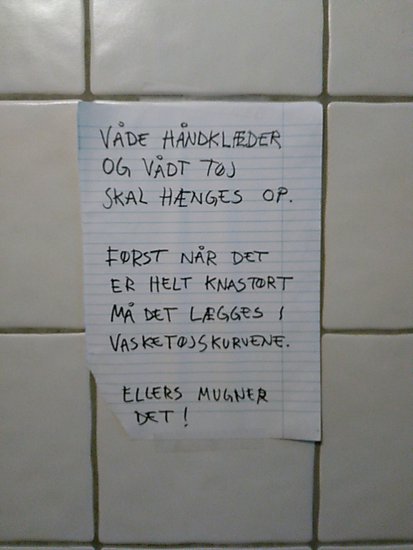 VÅDE HÅNDKLÆDER
OG VÅDT TØJ
SKAL HÆNGES OP.
FØRST NÅR DET
ER HELT KNASTØRT
MÅ DET LÆGGES I
VASKETØJSKURVENE.
ELLERS MUGNER
DET!